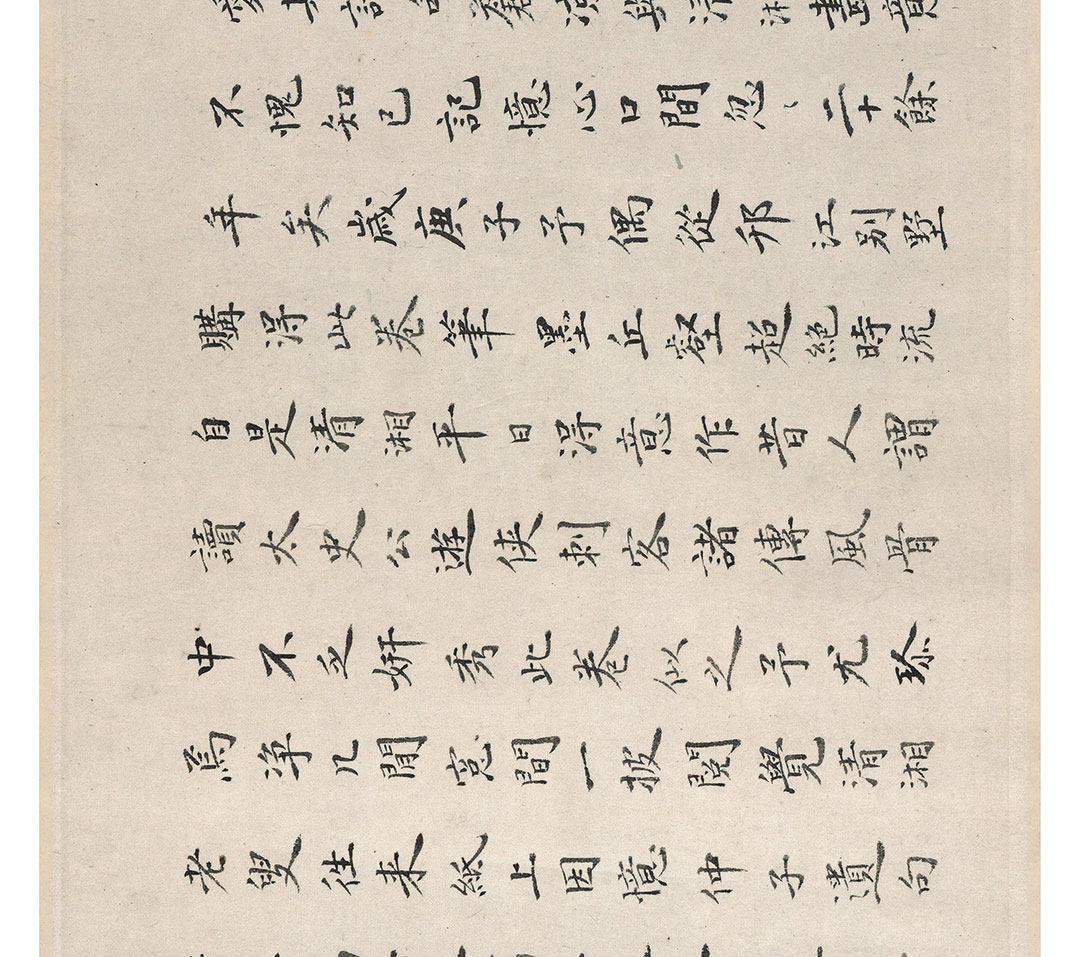 不愧知己記憶心口間忽ゝ二十餘
年矣歲庚子予偶從邗江别墅
購淂此卷筆墨丘壑超絕時流
自是清湘平日淂意作昔人謂
讀太史公遊俠刺客諸傳風骨
中不乏妍秀此卷似之予尤珎
焉净几閒窓間一披閱覺清湘
老叟往来紙上因憶仲子遺句